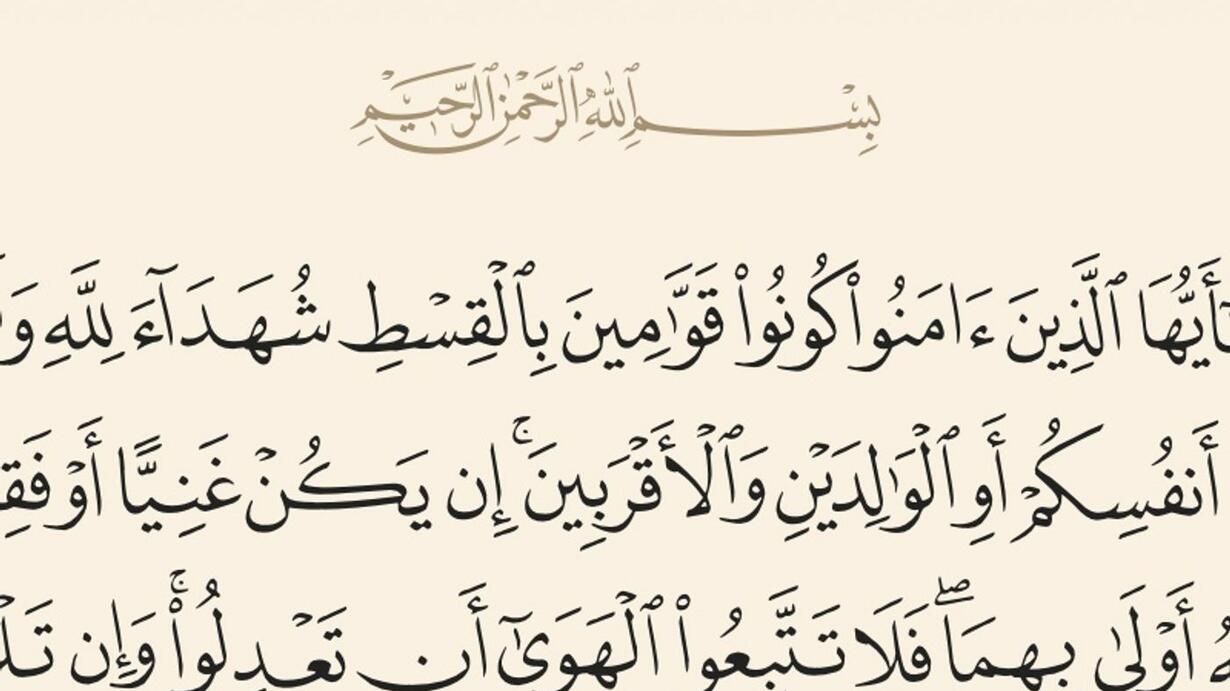 بِسْمِ ٱللَّهِ ٱلرَّحْمَٰنِ ٱلرَّحِيمِ
ٱلَّذِينَ ءَامَنُوا۟ كُونُوا۟ قَوَّٰمِينَ بِٱلْقِسْطِ شُهَدَآءَ لِلَّهِ
أَنفُسِكُمْ أَوِ ٱلْوَٰلِدَيْنِ وَٱلْأَقْرَبِينَ ۚ إِن يَكُنْ غَنِيًّا أَوْ
أَوْلَىٰ بِهِمَا ۖ فَلَا تَتَّبِعُوا۟ ٱلْهَوَىٰٓ أَن تَعْدِلُوا۟ ۚ وَإِن